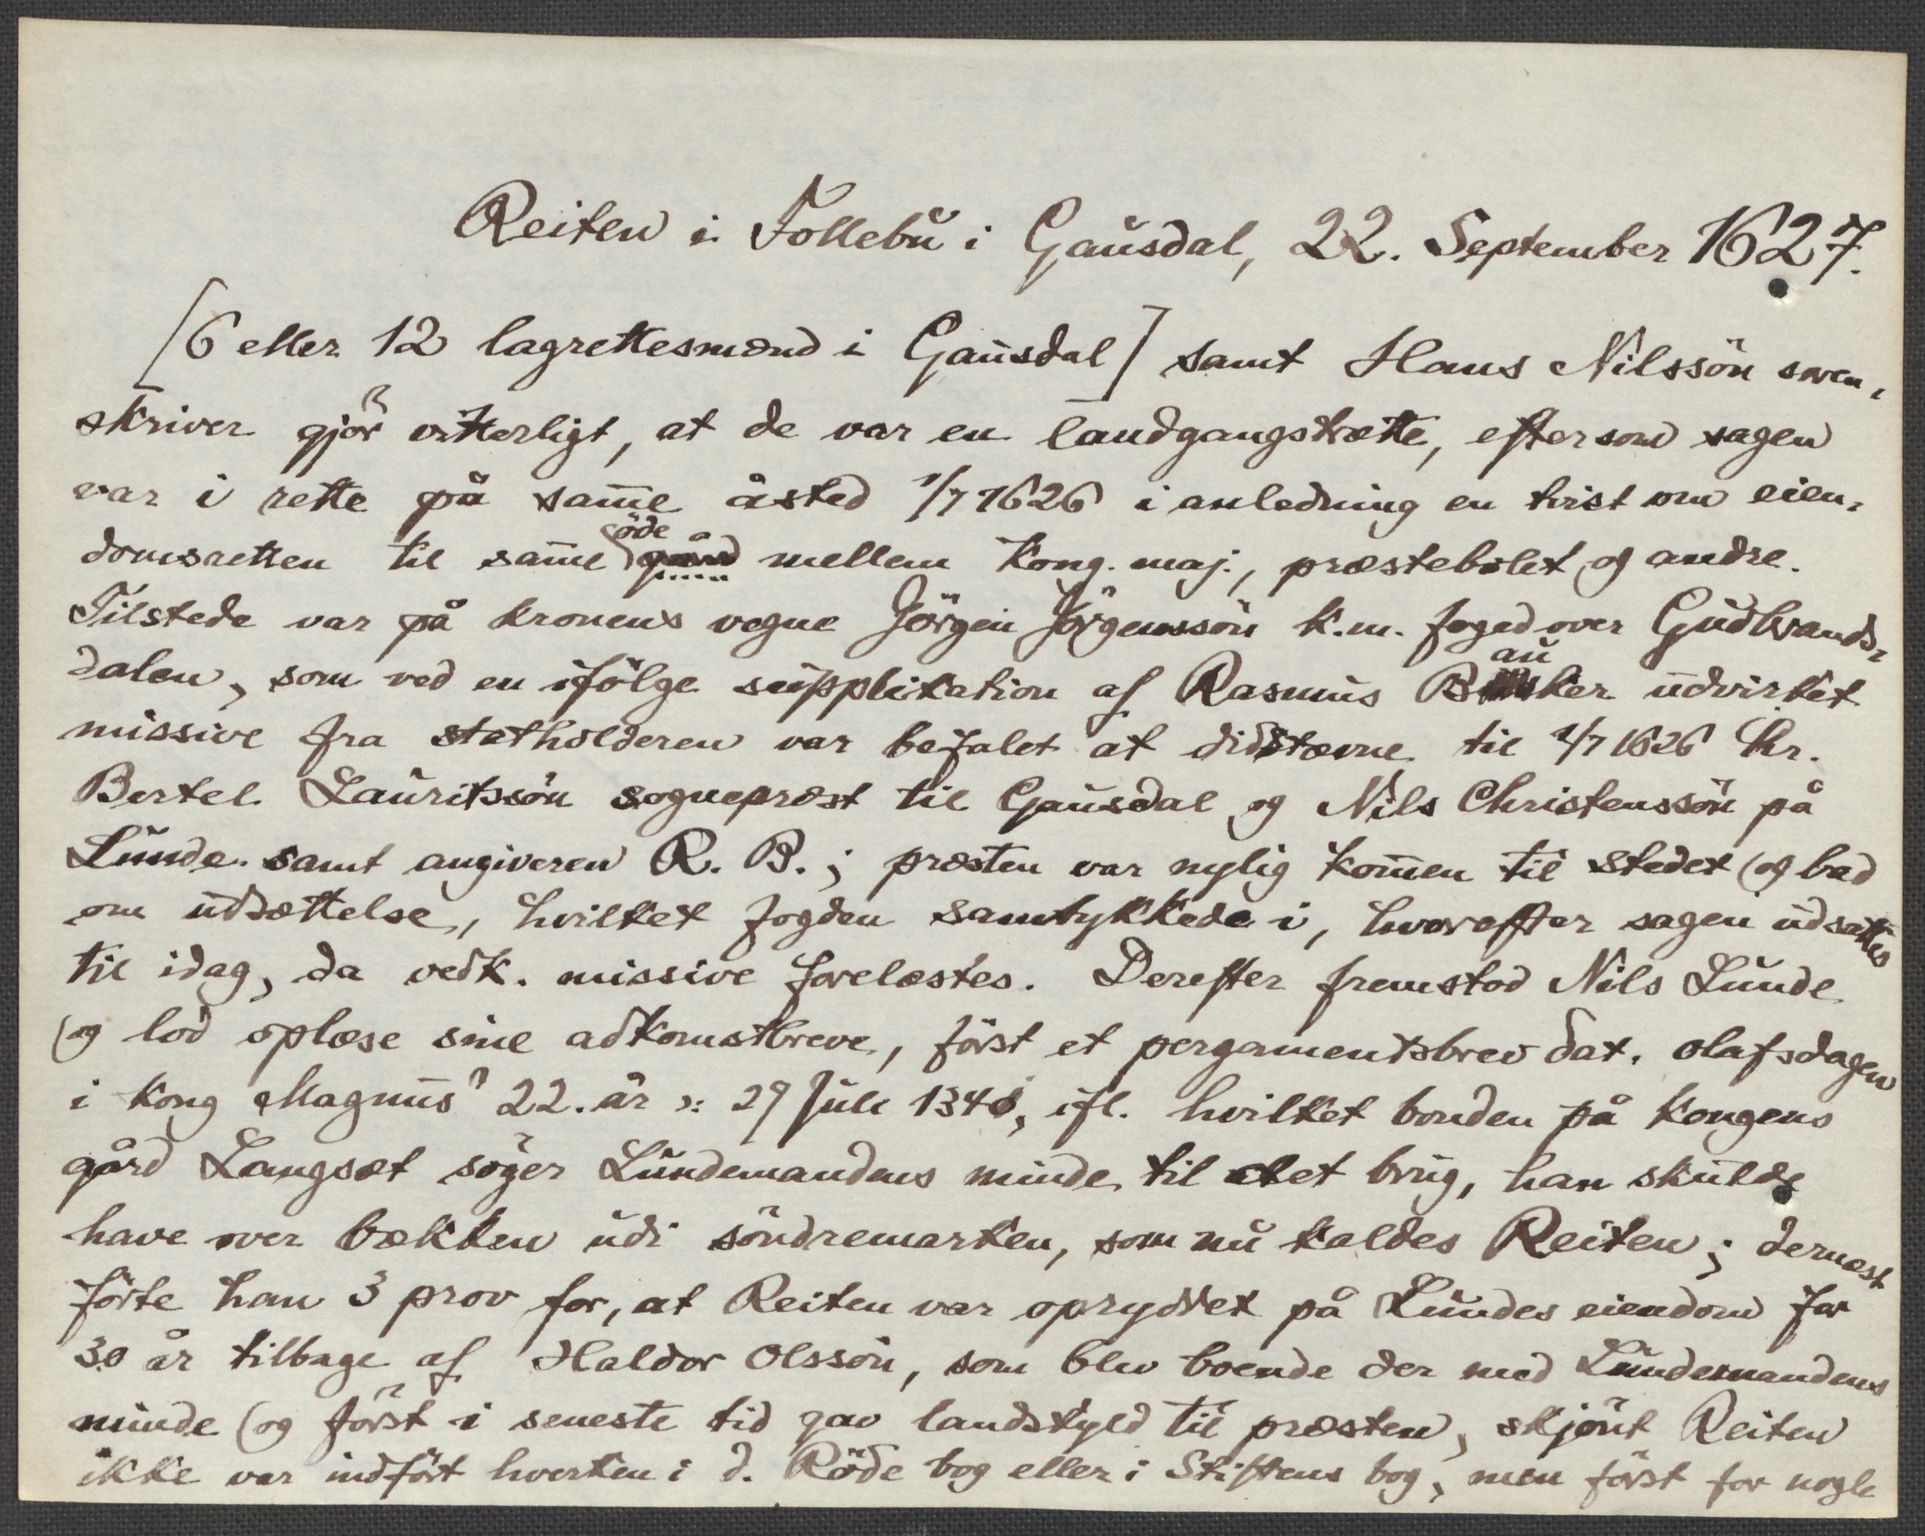 Reiten i Follebu i Gausdal, 22. September 1627.
[6 eller 12 lagrettesmænd i Gausdal] samt Hans Nilssön soren-
skriver gjör vitterligt, at de var en landgangstrætte, eftersom sagen
var i rette på samme åsted 1/7 1626 i anledning en tvist om eien-
domsretten til samme öde gård mellem kong. maj., præstebolet og andre.
Tilstede var på kronens vegne Jörgen Jörgenssön k.m. foged over Gudbrands-
dalen, som ved en ifölge supplikation af Rasmus Bauker udvirket
missive fra statholderen var befalet at didstævne til 1/7 1626 hr.
Bertel Lauritssön sognepræst til Gausdal og Nils Christenssön på
Lunde samt angiveren R. B.; præsten var nylig kommen til stedet og bad
om udsættelse, hvilket fogden samtykkede i, hvorefter sagen udsattes
til idag, da vedk. missive forelæstes. Derefter fremstod Nils Lunde
og lod oplæse sine adkomstbreve, först et pergamentsbrev dat. olafsdagen
i kong Magnus' 22. år ɔ: 29 Juli 1340, ifl. hvilket bonden på kongens
gård Langsæt söger Lundemandens minde til det brug, han skulde
have over bækken udi söndremarken, som nu kaldes Reiten; dernæst
förte han 3 prov for, at Reiten var opryddet på Lundes eiendom for
30 år tilbage af Haldor Olssön, som blev boende der med Lundemandens
minde og först i seneste tid gav landskyld til præsten, skjönt Reiten
ikke var indfört hverken i d. Röde bog eller i Stiftens bog, men först for nogle